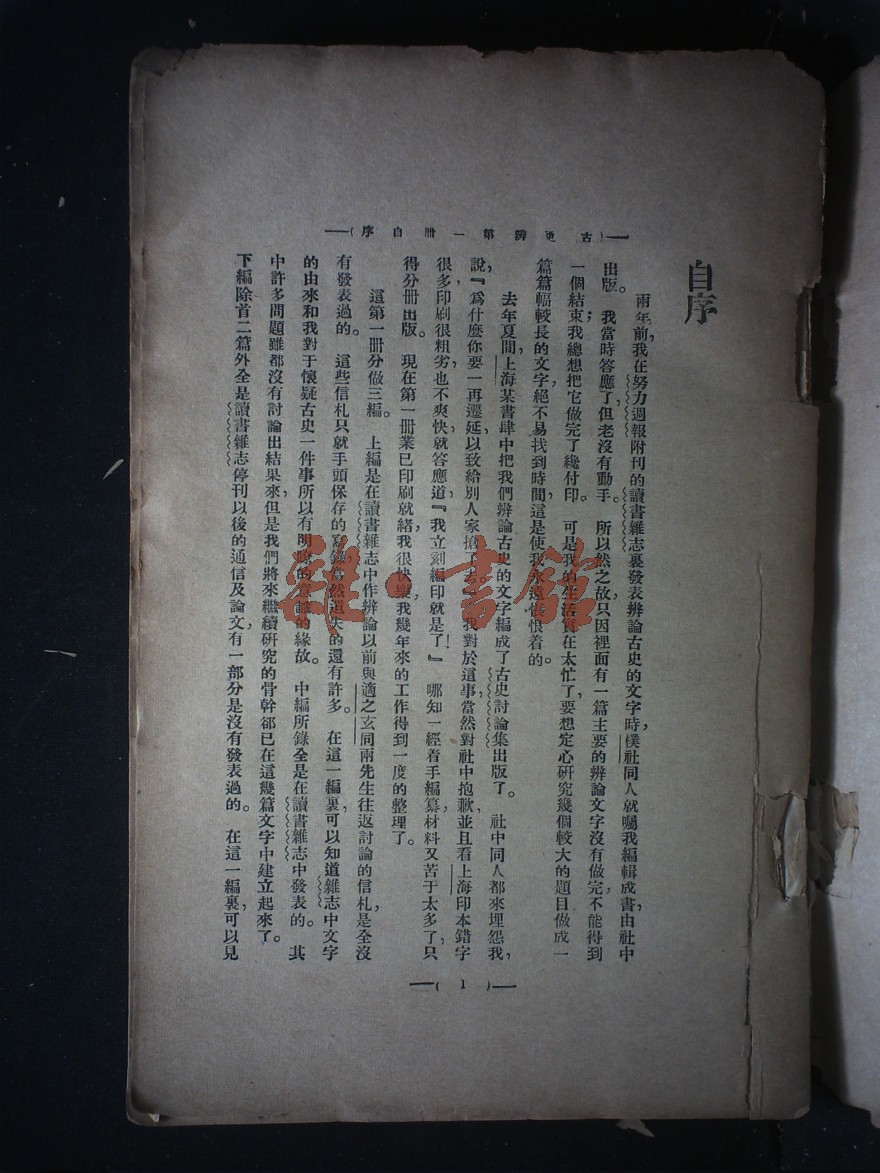 古史辨第一冊自序
自序
兩年前，我在努力週報附刊的讀書雜志裏發表辨論古史的文字時，樸社同人就囑我編輯成書，由社中
出版。我當時答應了，但老沒有動手。所以然之故，只因裡面有一篇主要的辨論文字沒有做完，不能得到
一個結束；我總想把它做完了纔付印。可是我的生活實在太忙了，要想定心研究幾個較大的題目，做成一
篇篇幅較長的文字，絕不易找到時間，這是使我永遠悵恨着的。
去年夏間，上海某書肆中把我們辨論古史的文字編成了古史討論集出版了。社中同人都來埋怨我，
說，『爲什麼你要一再遷延，以致給別人家搶了去』。我對於這事，當然對社中抱歉，並且看上海印本錯字
很多，印刷很粗劣，也不爽快，就答應道，『我立刻編印就是了！』哪知一經着手編纂，材料又苦于太多了，只
得分冊出版。現在第一冊業已印刷就緒，我很快樂，我幾年來的工作得到一度的整理了。
這第一冊分做三編。上編是在讀書雜志中作辨論以前與適之玄同兩先生往返討論的信札，是全沒
有發表過的。這些信札只就手頭保存的寫錄，當然遺失的還有許多。在這一編裏，可以知道雜志中文字
的由來和我對于懷疑古史一件事所以有明瞭的意識的緣故。中編所錄全是在讀書雜志中發表的。其
中許多問題雖都沒有討論出結果來，但是我們將來繼續研究的骨幹卻已在這幾篇文字中建立起來了。
下編除首二篇外全是讀書雜志停刊以後的通信及論文，有一部分是沒有發表過的。在這一編裏，可以見
(1)
雜·書館